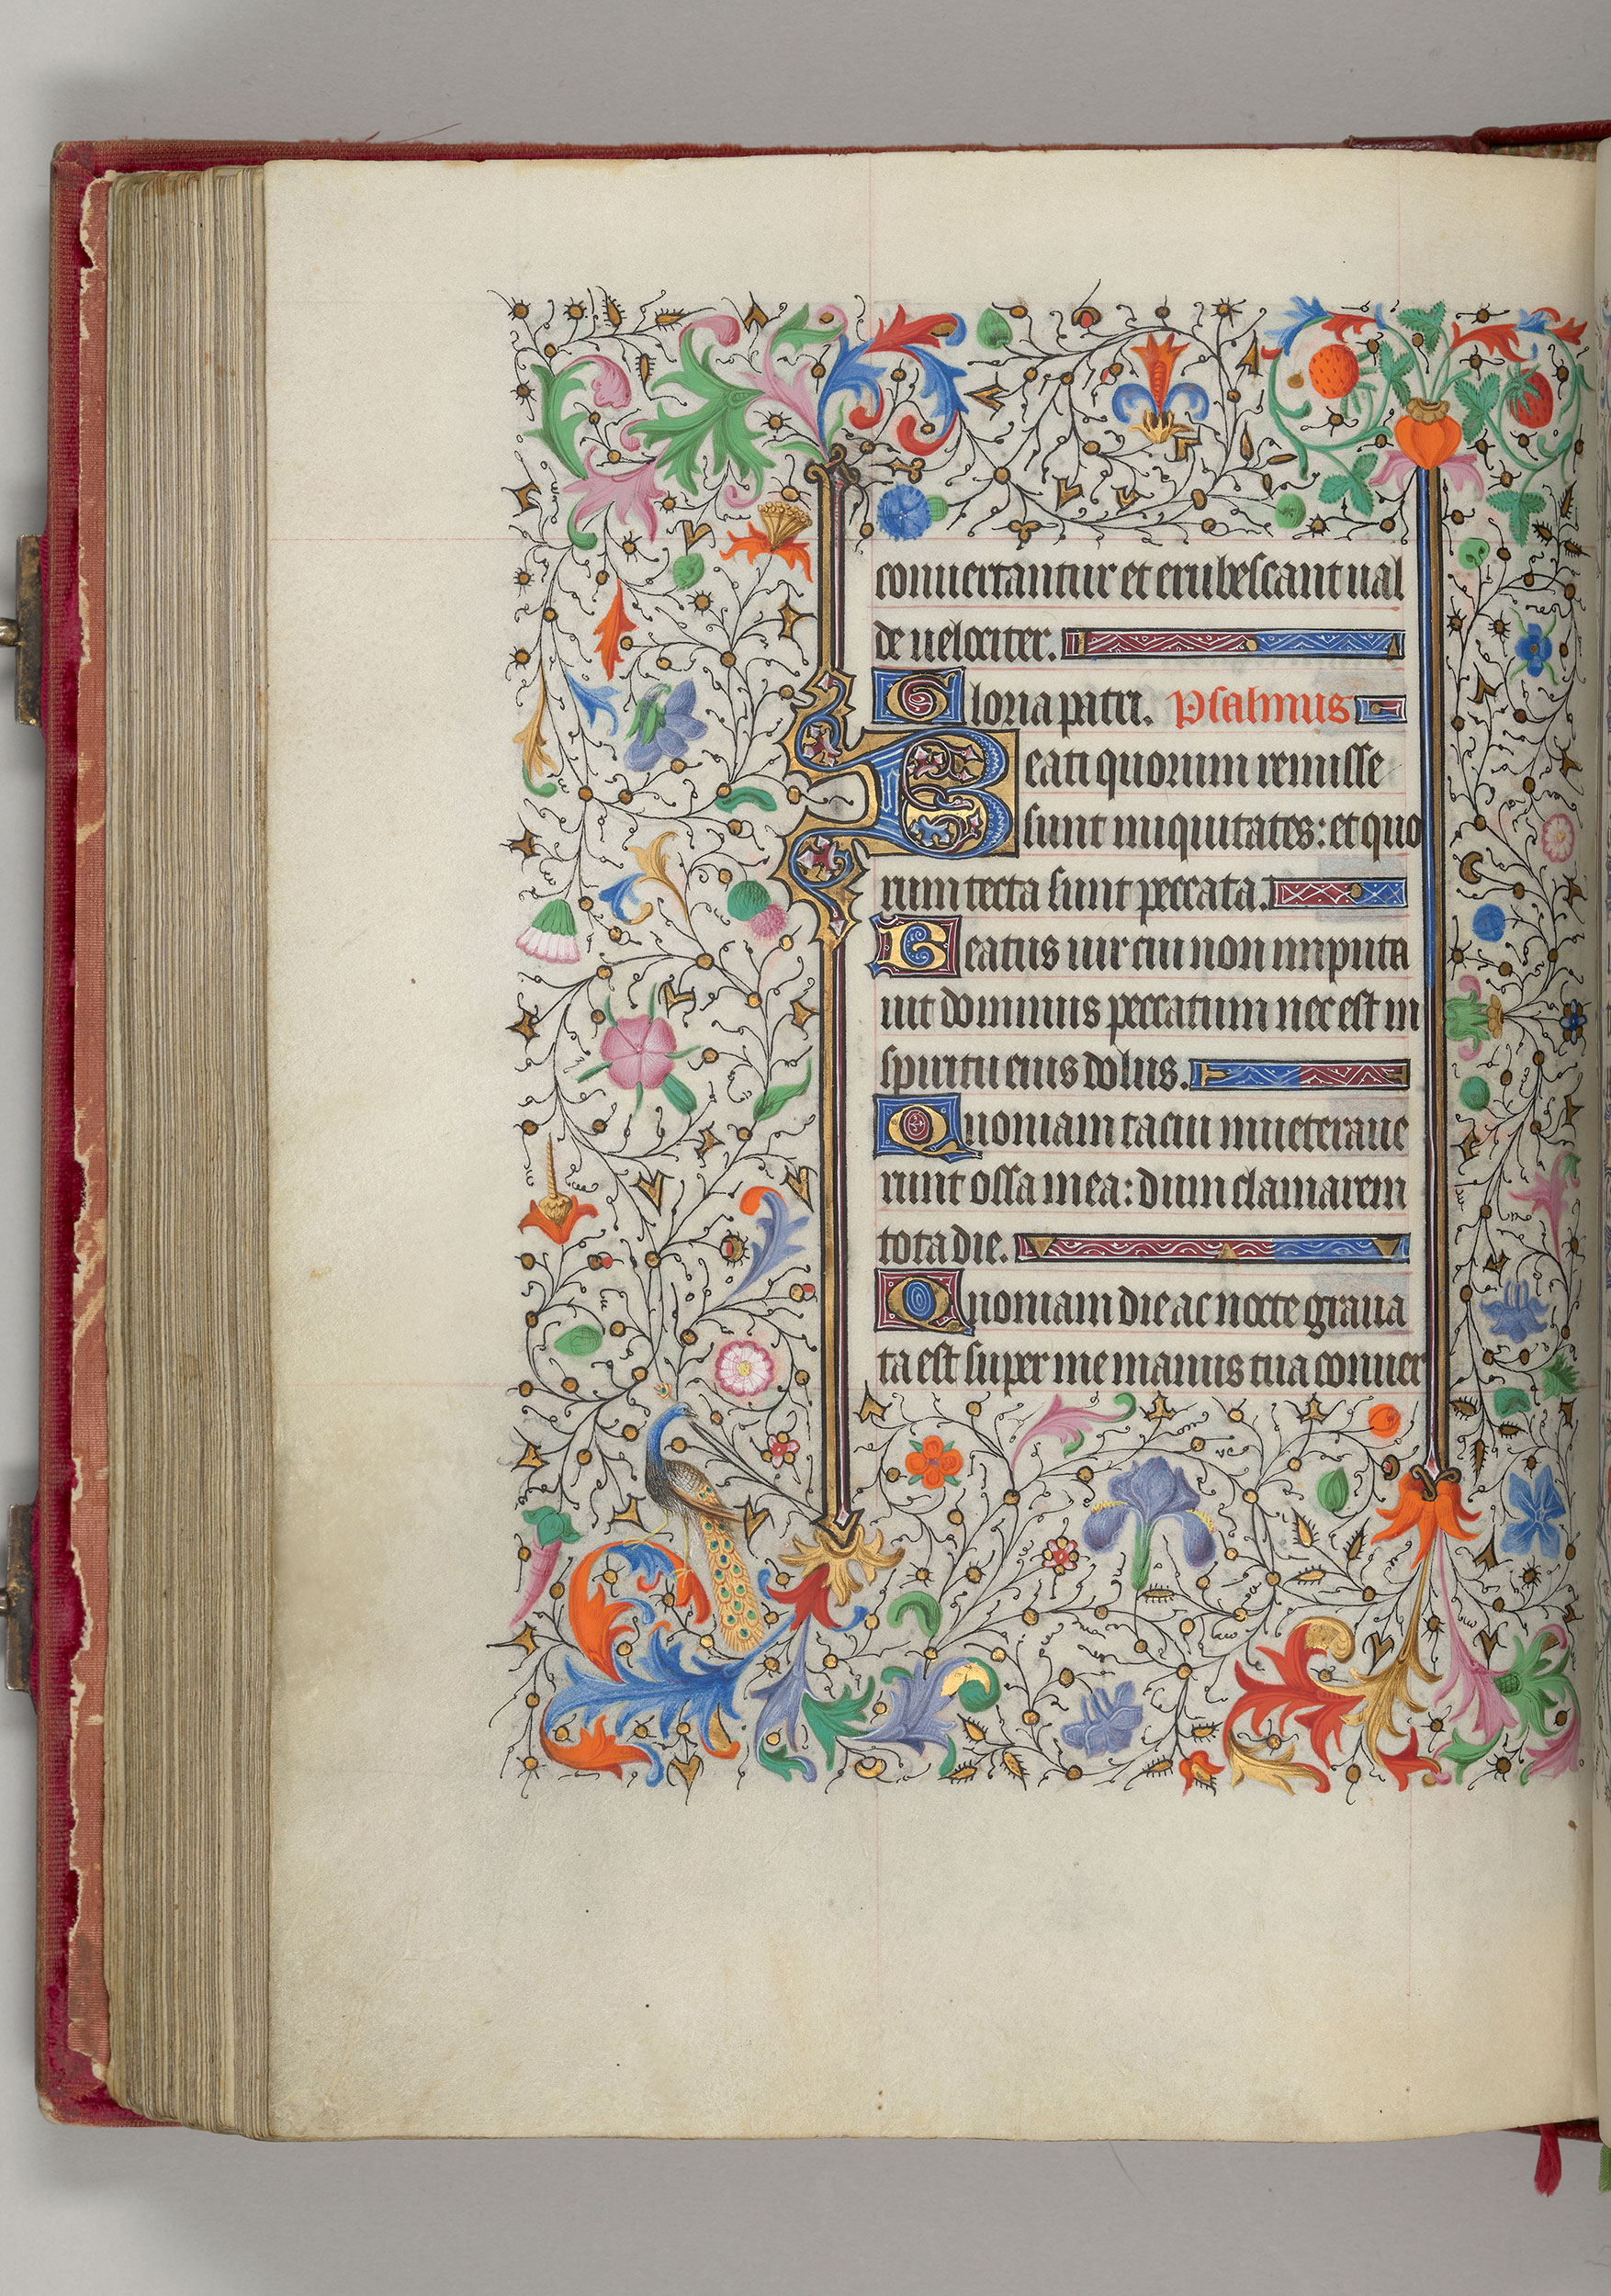 conuertantur et erubescant ual
de uelociter.
Gloria patri. Psalmus
Beati quorum remisse
sunt iniquitates: et quo
rum tecta sunt peccata.
Beatus uir cui non imputa
uit dominus peccatum nec est in
spiritu eius dolus.
Quoniam tacui inueteraue
runt ossa mea: dum clamarem
tota die.
Quoniam die ac nocte graua
ta est super me manus tua conuer